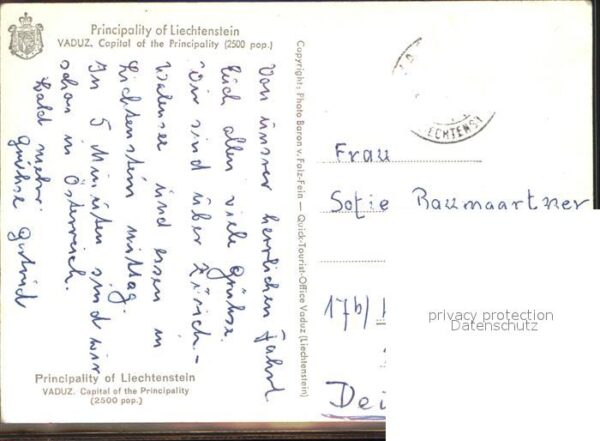 Principality of Liechtenstein
VADUZ. Capital of the Principality (2500 pop.)
Von unserer herrlichen Fahrt
Euch allen viele Grüße.
Wir sind über Zürich-
Walensee und essen in
Lichtenstein mittag.
In 5 Minuten sind wir
schon in Österreich.
bald mehr.
Grüße Gertrud
Principality of Liechtenstein
VADUZ. Capital of the Principality
(2500 pop.)
Copyright: Photo Baron v. Falz-Fein — Quick-Tourist-Office Vaduz (Liechtenstein)
ECHTENST
Frau
Sofie Baumgartner
17b/
Dei
privacy protection
Datenschutz